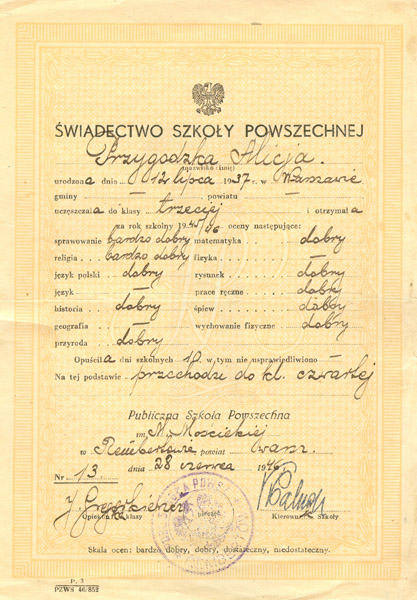 ŚWIADECTWO SZKOŁY POWSZECHNEJ
Przygodzka Alicja.
(nazwisko i imię)
urodzona dnia 12 lipca 1937 r. w Warszawie
gminy — powiatu —
uczęszczała do klasy trzeciej i otrzymała
za rok szkolny 1945/46 oceny następujące:
sprawowanie bardzo dobry matematyka dobry
religia bardzo dobry fizyka —
język polski dobry rysunek dobry
język — prace ręczne dobry
historia dobry śpiew dobry
geografia — wychowanie fizyczne dobry
przyroda dobry
Opuściła dni szkolnych 10 w tym nie usprawiedliwiono —
Na tej podstawie przechodzi do kl. czwartej
Publiczna Szkoła Powszechna
im. Mościckiej
w Rembertowie powiat warsz.
Nr 13 dnia 28 czerwca 1946 r.
Opiekun klasy pieczęć Kierownik Szkoły
Skala ocen: bardzo dobry, dobry, dostateczny, niedostateczny.
P. 3
PZWS 46/852